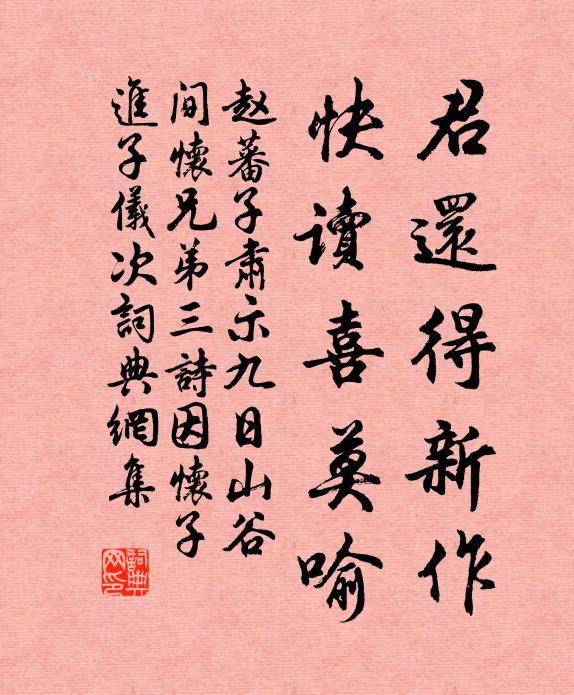 君還得新作
快讀喜莫喻
赵蕃子肅示九日山谷
间懷兄弟三詩因懷子
進子儀次詞典網集
詞典网印